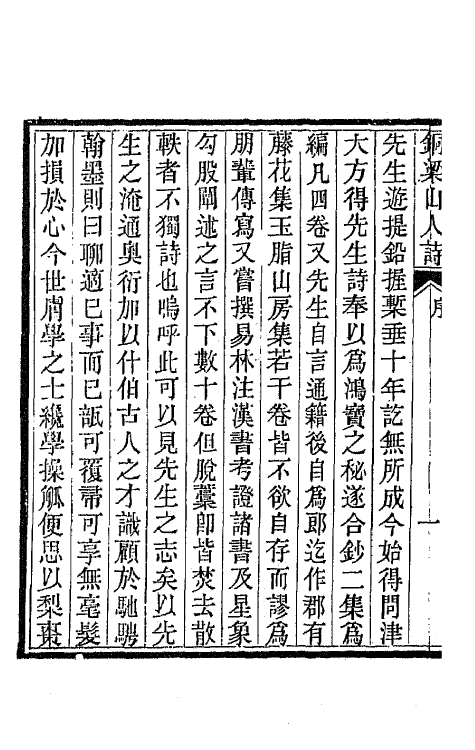 銅梁山人詩 序 一
先生遊提鉛握槧垂十年訖無所成今始得問津
大方得先生詩奉以爲鴻寶之秘遂合鈔二集爲
編凡四卷又先生自言通籍後自爲郎迄作郡有
藤花集玉脂山房集若干卷皆不欲自存而謬爲
朋輩傳寫又嘗撰易林注漢書考證諸書及星象
勾股闡述之言不下數十卷但脫藁卽皆焚去散
軼者不獨詩也嗚呼此可以見先生之志矣以先
生之淹通奧衍加以什伯古人之才識顧於馳騁
翰墨則曰聊適已事而已瓿可覆帚可享無毫髮
加損於心今世膚學之士纔學操觚便思以梨棗